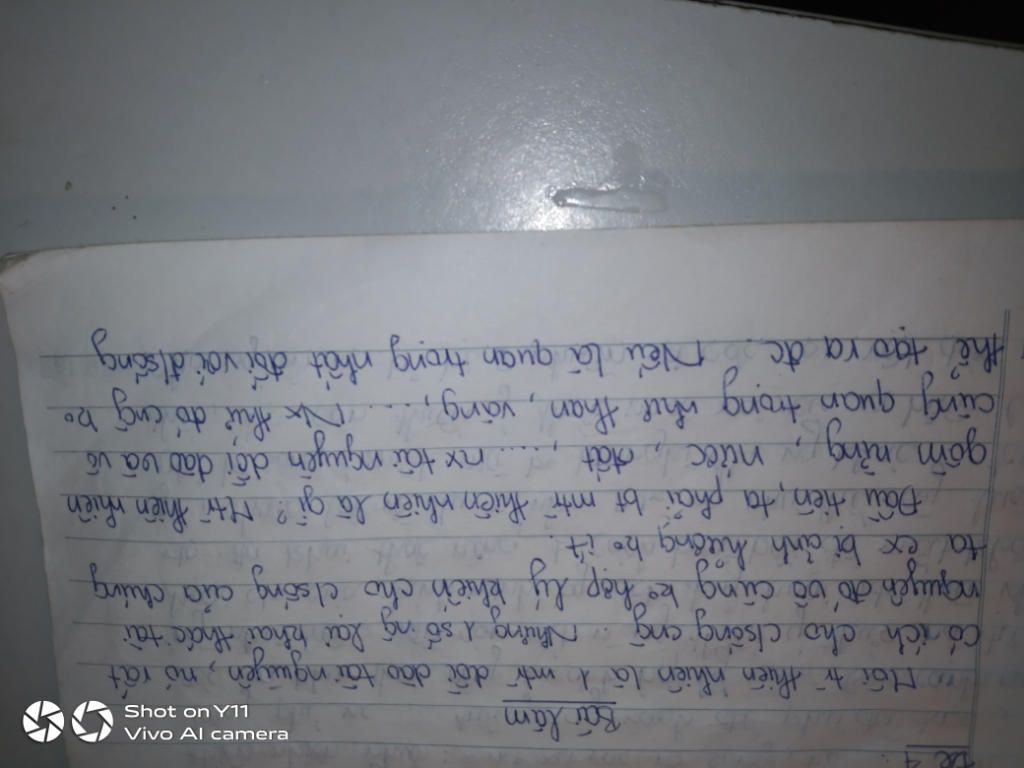 Đề 4:
Bài làm
Môi tr̀ thiên nhiên là 1 mtr̀ dồi dào tài nguyên, nó rất
có ích cho c/sống cng̀. Nhưng 1 số ng̀ lại khai thác tài
nguyên đó vô cùng k° hợp lý khiến cho c/sống của chúng
ta cx bị ảnh hưởng k° ít.
Đầu tiên, ta phải bt mtr̀ thiên nhiên là gì? Mtr̀ thiên nhiên
gồm rừng, nước, đất, .... nx tài nguyên dồi dào và vô
cùng quan trọng như than, vàng, ... Nx thứ đó cng̀ k°
thể tạo ra đc. Nếu là quan trọng nhất đối với đ/sống
Shot on Y11
Vivo AI camera